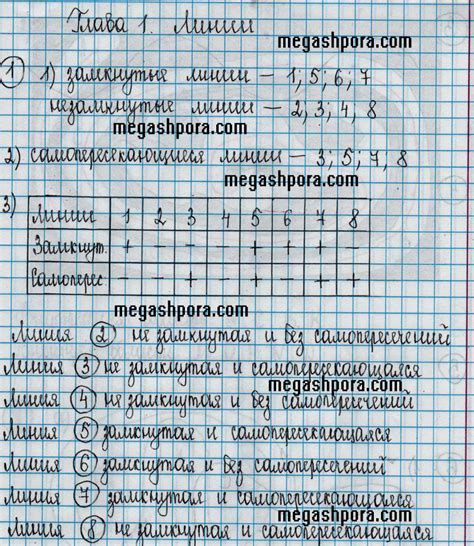 Глава 1. Линии
megashpora.com
① 1) замкнутые линии — 1; 5; 6; 7
незамкнутые линии — 2; 3; 4, 8
megashpora.com
2) самопересекающиеся линии — 3; 5; 7, 8
megashpora.com
3) Линии 1 2 3 4 5 6 7 8
Замкнут. + – – – + + + –
Самоперес. – – + – + – + +
megashpora.com
Линия ② не замкнутая и без самопересечений
Линия ③ не замкнутая и самопересекающаяся
megashpora.com
Линия ④ не замкнутая и без самопересечений
Линия ⑤ замкнутая и самопересекающаяся
Линия ⑥ замкнутая и без самопересечений
megashpora.com
Линия ⑦ замкнутая и самопересекающаяся
megashpora.com
Линия ⑧ не замкнутая и самопересекающаяся